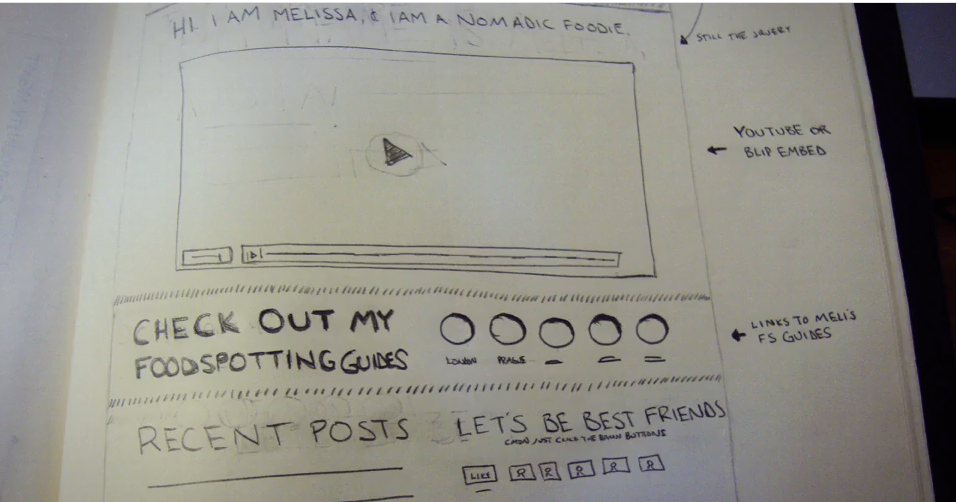 HI. I AM MELISSA, & I AM A NOMADIC FOODIE.
STILL THE JQUERY
YOUTUBE OR
BLIP EMBED
CHECK OUT MY
FOODSPOTTING GUIDES
LONDN PRAGE
LINKS TO MELI'S
FS GUIDES
RECENT POSTS
LET'S BE BEST FRIENDS
C'MON JUST CLICK THE DAMN BUTTONS
LIKE R R R R R